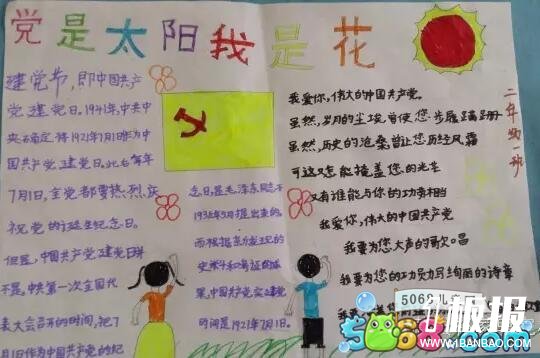 党是太阳我是花
建党节，即中国共产
党建党日。1941年，中共中
央确定将1921年7月1日作为中
国共产党建党日。此后每年
7月1日，全党都要热烈庆
祝党的诞生纪念日。
但是，中国共产党建党日并
不是，中共第一次全国代
表大会召开的时间，把7
月1日作为中国共产党的纪
念日，是毛泽东同志于
1938年5月提出来的。
史料和考证的成
果，中国共产党实建党
时间是1921年7月1日。
我爱你，伟大的中国共产党
虽然，岁月的尘埃，曾使您步履蹒跚
虽然，历史的沧桑，曾让您历经风霜
可这又怎能掩盖您的光芒
又有谁能与你的功劳相当
我爱你，伟大的中国共产党
我要为您大声的歌唱
我要为您的写绚丽的诗章
二年级一班
5068儿
5068.com
板报
WWW.1BANBAO.COM